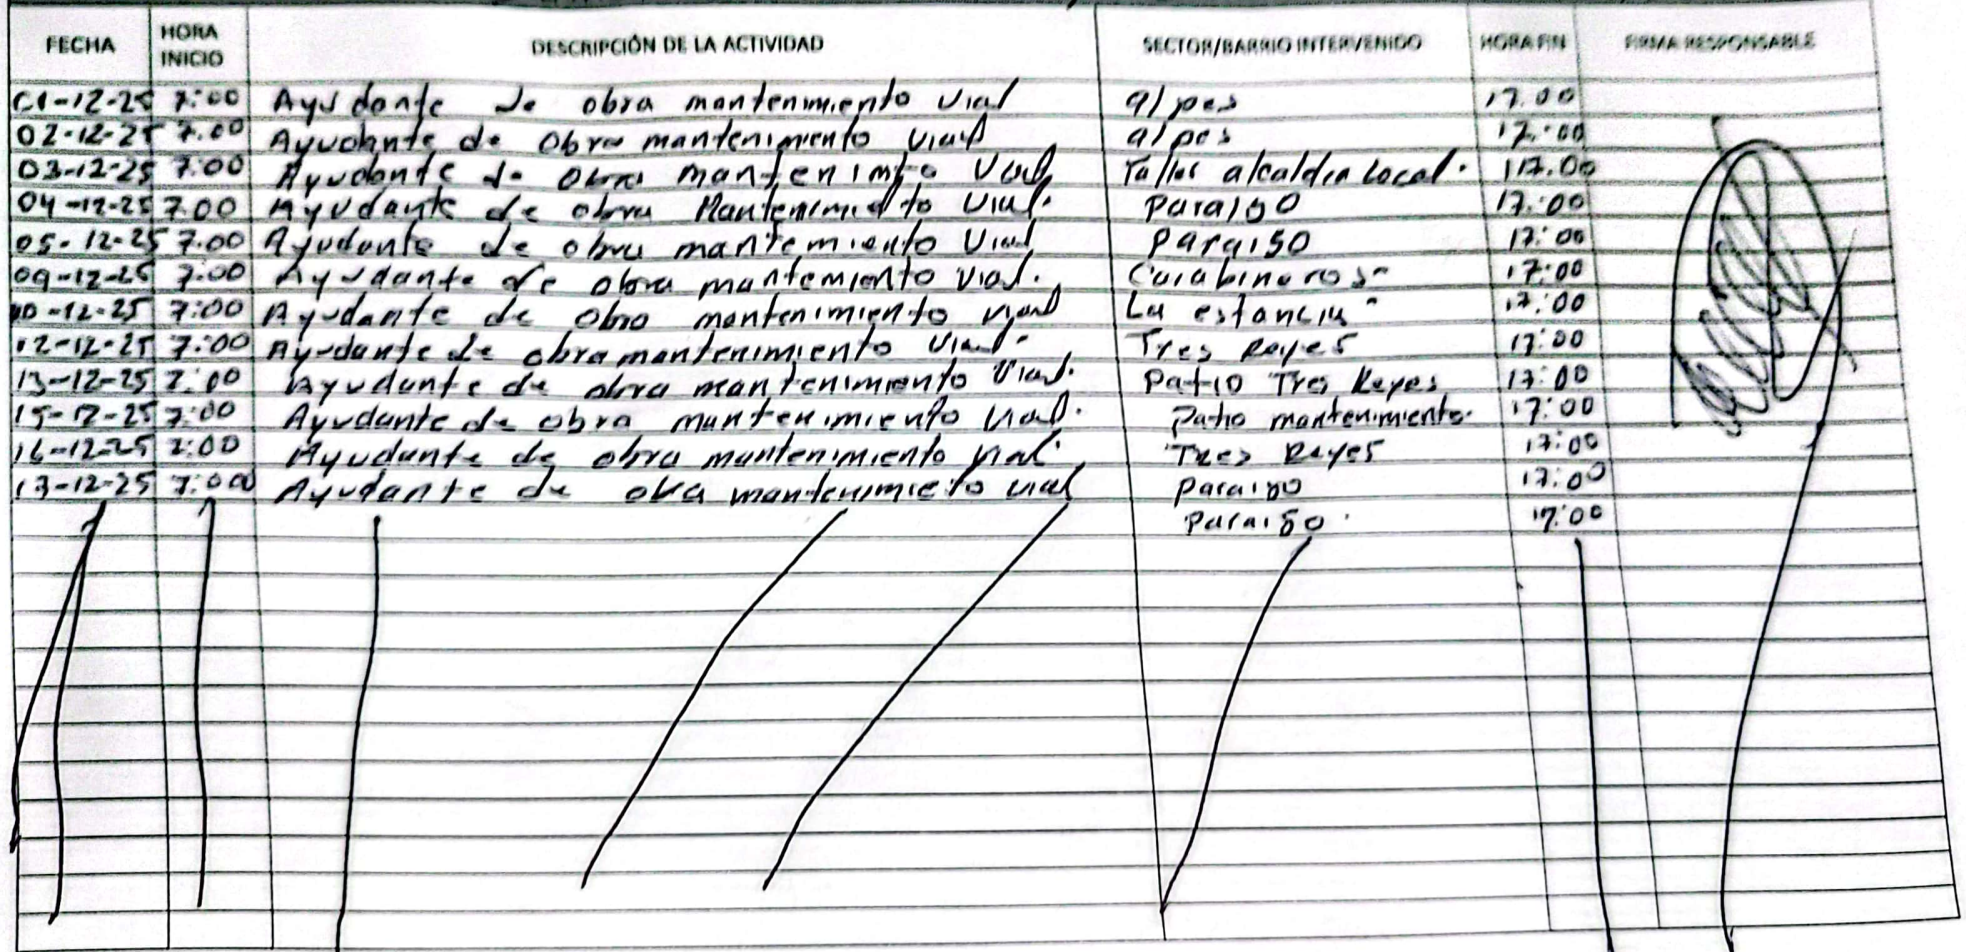 FECHA HORA INICIO DESCRIPCIÓN DE LA ACTIVIDAD SECTOR/BARRIO INTERVENIDO HORA FIN FIRMA RESPONSABLE
01-12-25 7:00 Ayudante de obra mantenimiento vial alpes 17.00
02-12-25 7.00 Ayudante de Obra mantenimiento vial alpes 17:00
03-12-25 7:00 Ayudante de Obra mantenimto Vial Taller alcaldia Local. 17.00
04-12-25 7.00 Ayudante de obra Mantenimiedto Vial. Paraiso 17:00
05-12-25 7.00 Ayudante de obra mantemiento Vial Paraiso 17:00
09-12-25 7:00 Ayudante de obra mantemiento vial. Carabineros 17:00
10-12-25 7:00 Ayudante de obra mantenimiento vial La estancia 17:00
12-12-25 7:00 Ayudante de obra mantenimiento vial Tres Reyes 17:00
13-12-25 7:00 Ayudante de obra mantenimiento Vial. Patio Tres Reyes 17:00
15-12-25 7:00 Ayudante de obra mantenimiento vial. Patio mantenimiento. 17:00
16-12-25 7:00 Ayudante de obra mantenimiento vial. Tres Reyes 17:00
17-12-25 7:000 Ayudante de obra mantenimieto vial Paraiso 17:00
Paraiso. 17:00